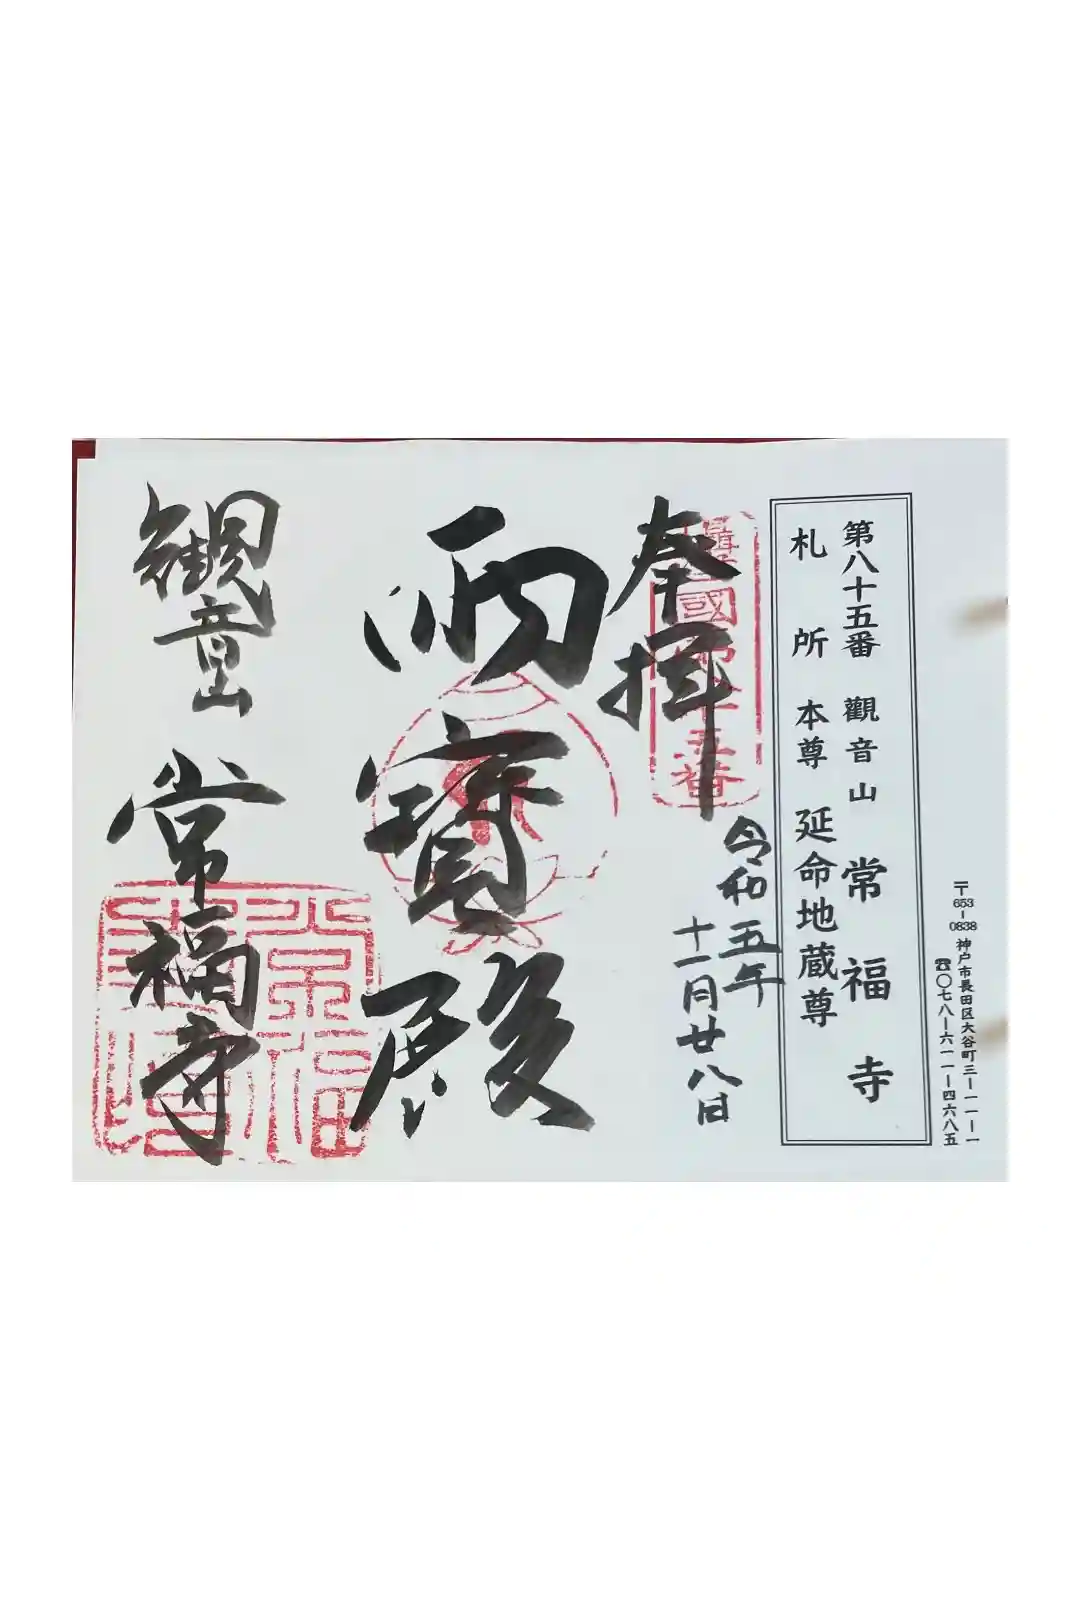 〒653-0838 神戸市長田区大谷町三ー一一ー一
☎〇七八ー六一一ー四六八五
第八十五番 觀音山 常福寺
札所 本尊 延命地蔵尊
奉拜
令和五年
十一月廿八日
雨寳殿
觀音山 常福寺